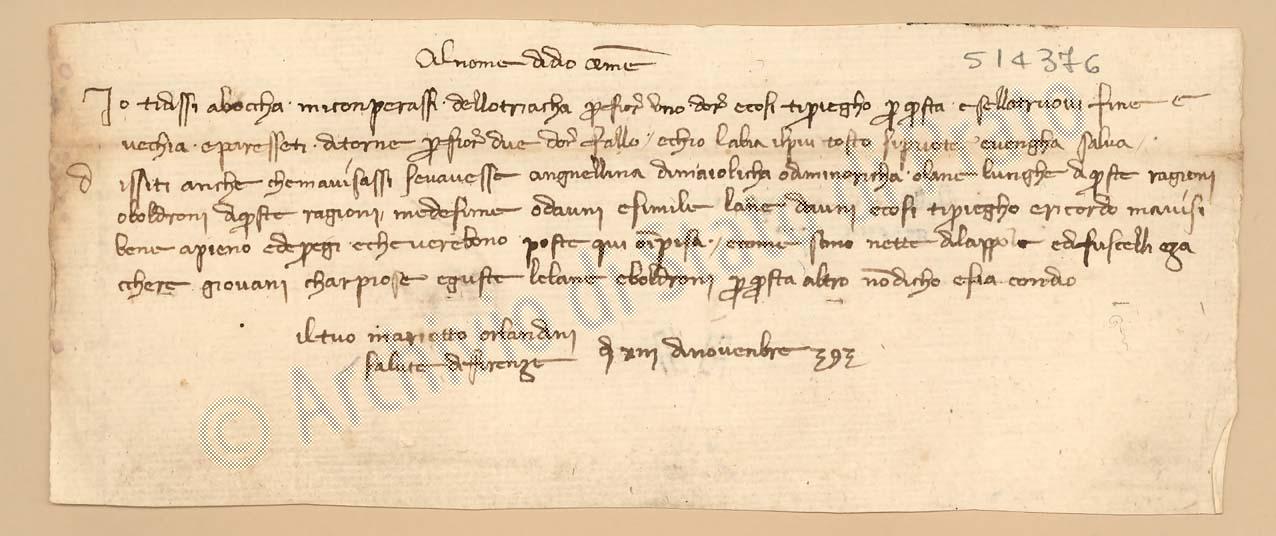 Al nome di dio ame
514376
Io ti dissi a boccha mi conperassi dell otriacha per fior uno d or e cosi ti priegho per questa e se llo truovi fine e
vechia e paresseti da torne per fior due d or fallo e ch io l abia il piu tosto si puote e vengha salva
d issiti anche che m avisassi se v avesse angnellina di maiolicha o di minoricha o lane lunghe di queste ragioni
o boldroni di queste ragioni medesime o d avni e simile lane d avni e cosi ti priegho e ricordo m avisi
bene a pieno e de pregi e che verebono poste qui o in pisa e come sono nette di lappole e di fuscelli e za
cchere giovani charpiose e guste le lane e boldroni per questa altro non dicho e sia con dio
il tuo mariotto orlandini
salute di firenze
di xiii di novenbre 393
© Archivio di Stato di Prato